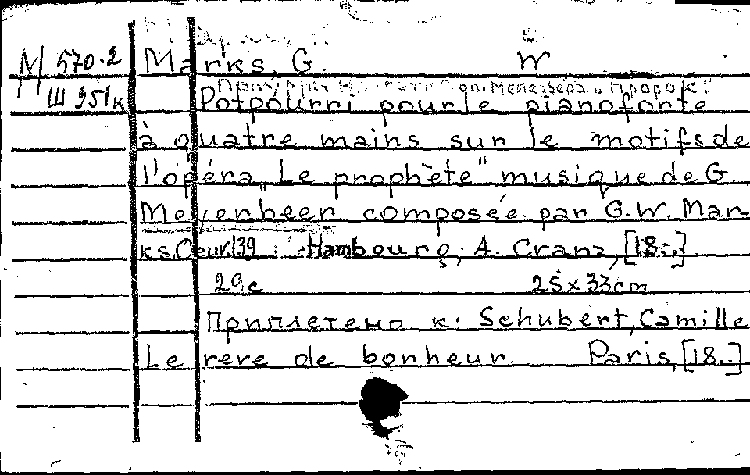 М 570-2 Marks, G. W
Ш 951к
Potpourri pour le pianoforte
à quatre mains sur le motifs de
l'opéra „Le prophète" musique de G.
Meyerbeer composée par G.W. Mar-
ks. Oeuv 139 Hambourg, A. Cranz, [18-.]
29 c 25x33 cm
Приплетено к: Schubert, Camille
Le reve de bonheur Paris, [18.-]